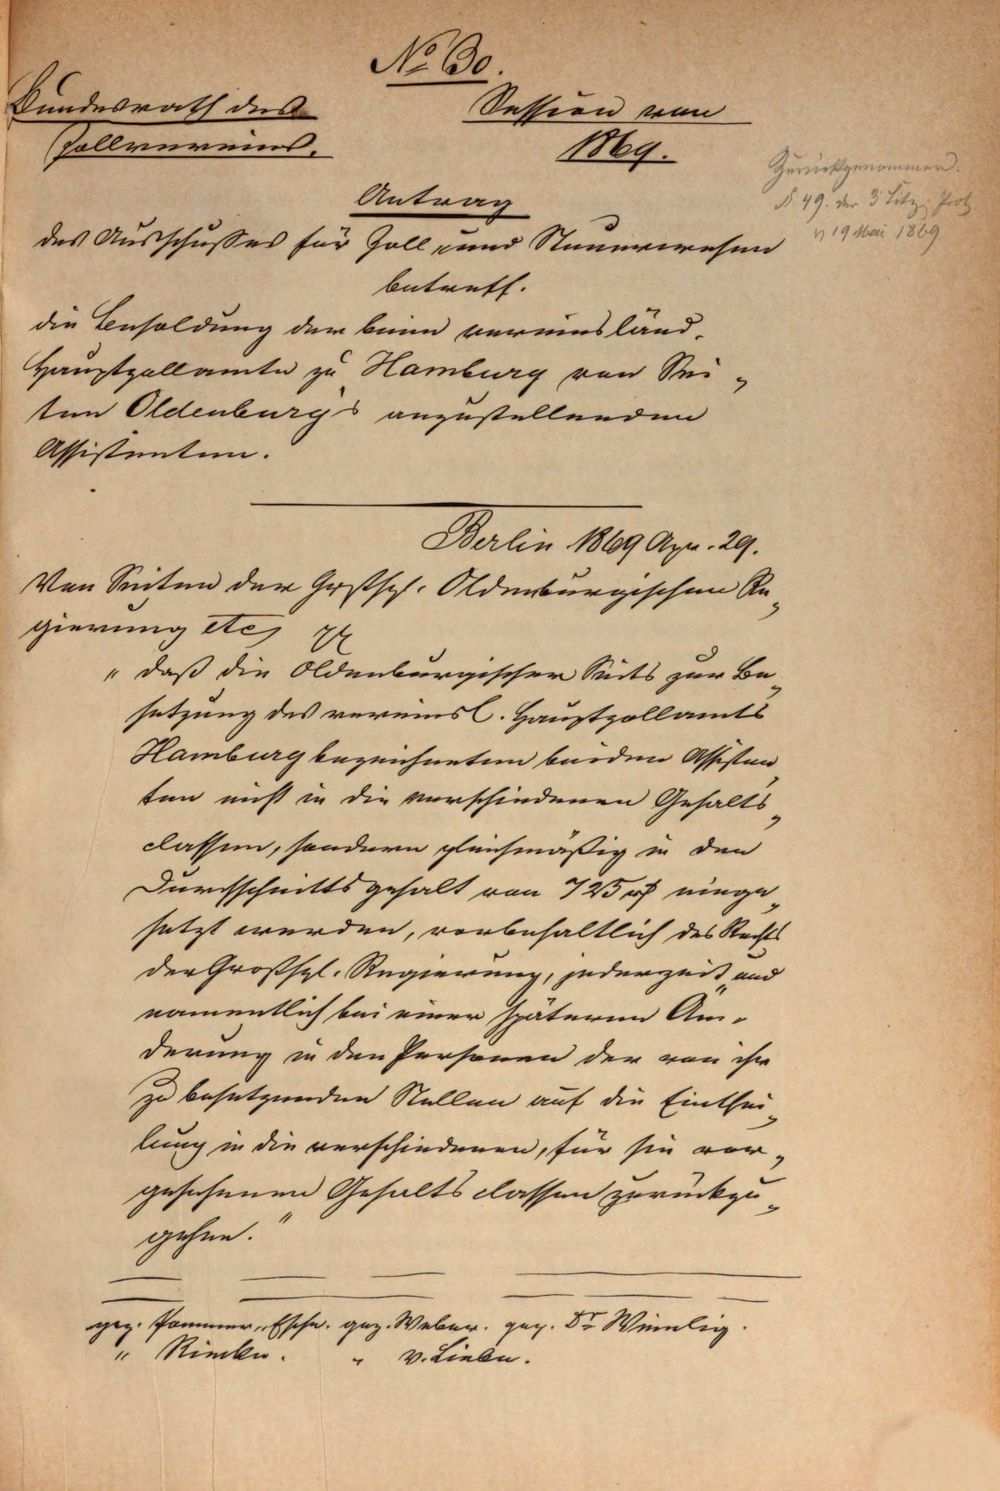 No 30.
Bundesrath des
Zollvereins.
Session von
1869.
Zurückgenommen.
§. 49. der 3 Sitz. Prot
v 19 Mai 1869
Antrag
des Ausschusses für Zoll und Steuerwesen
betreff.
die Besoldung der beim vereinsländ.
Hauptzollamte zu Hamburg von Sei-
ten Oldenburg's anzustellenden
Assistenten.
Berlin 1869 Apr. 29.
Von Seiten der Grßhzl. Oldenburgischen Re-
gierung etc
" daß die Oldenburgischer Seits zur Be-
setzung des vereinsl. Hauptzollamts
Hamburg bezeichneten beiden Assisten-
ten nicht in die verschiedenen Gehalts-
classen, sondern gleichmäßig in den
Durchschnittsgehalt von 725 rβ einge-
setzt werden, vorbehaltlich des Rechts
der Großhzl. Regierung, jederzeit und
namentlich bei einer späteren Än-
derung in den Personen der von ihr
zu besetzenden Stellen auf die Einthei-
lung in die verschiedenen, für sie vor-
gesehenen Gehaltsclassen zurückzu-
gehen."
gez. Pommer-Esche. gez. Weber. gez. Dr
" v. Liebe.